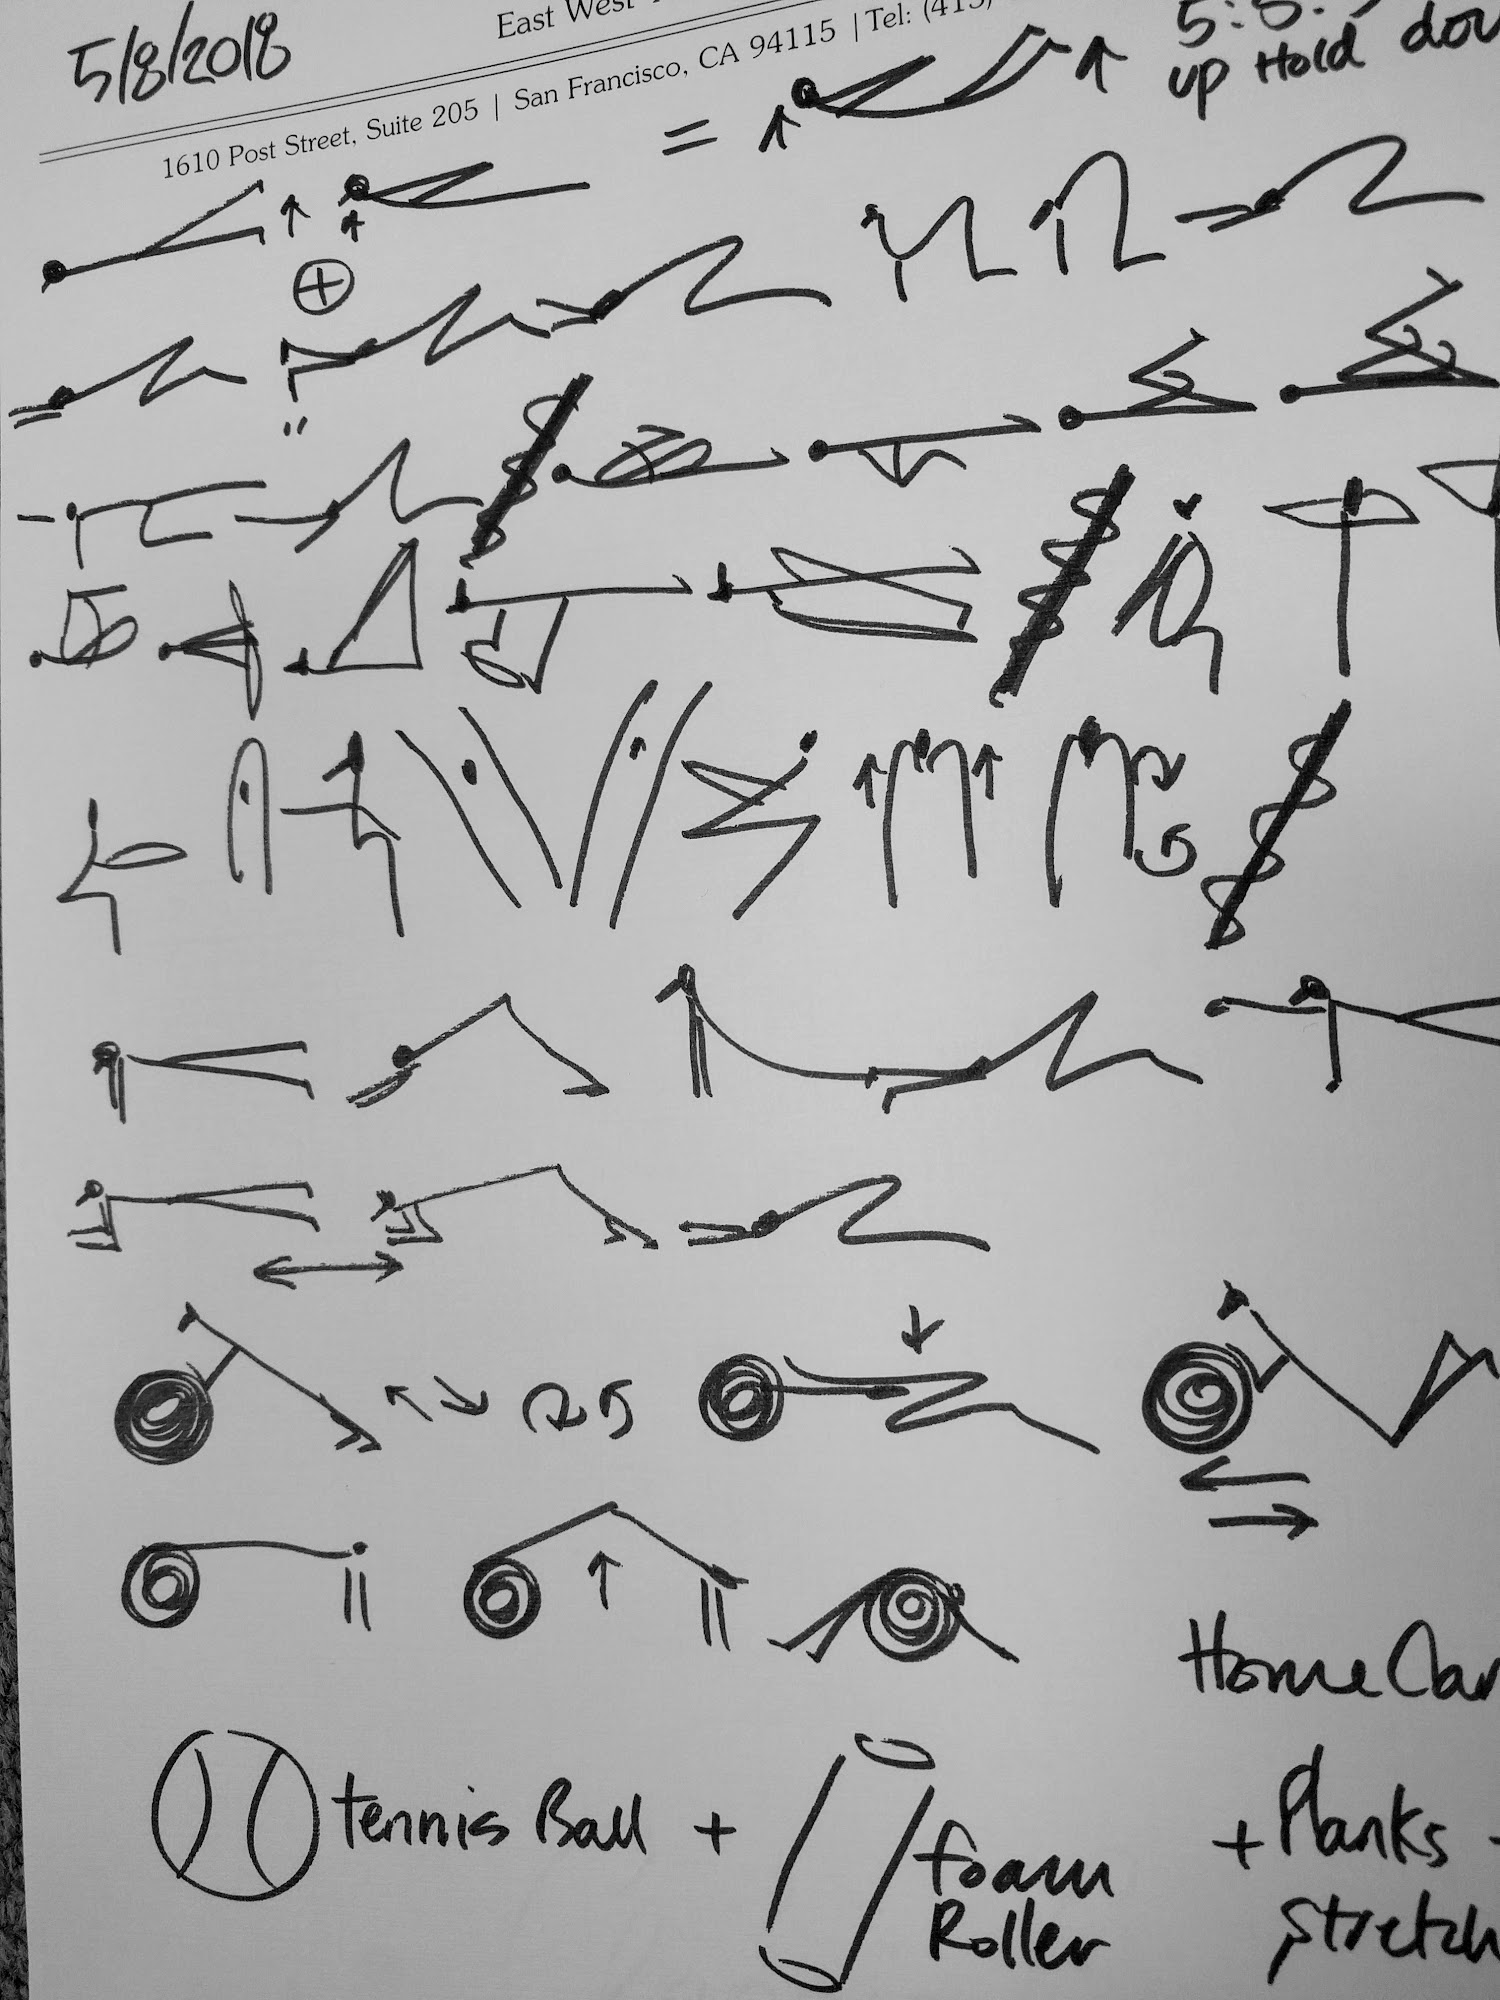 5/8/2018
East West
1610 Post Street, Suite 205 | San Francisco, CA 94115 | Tel: (415)
5:5:
up Hold dow
Home Car
tennis Ball + foam Roller
+ Planks
stretch